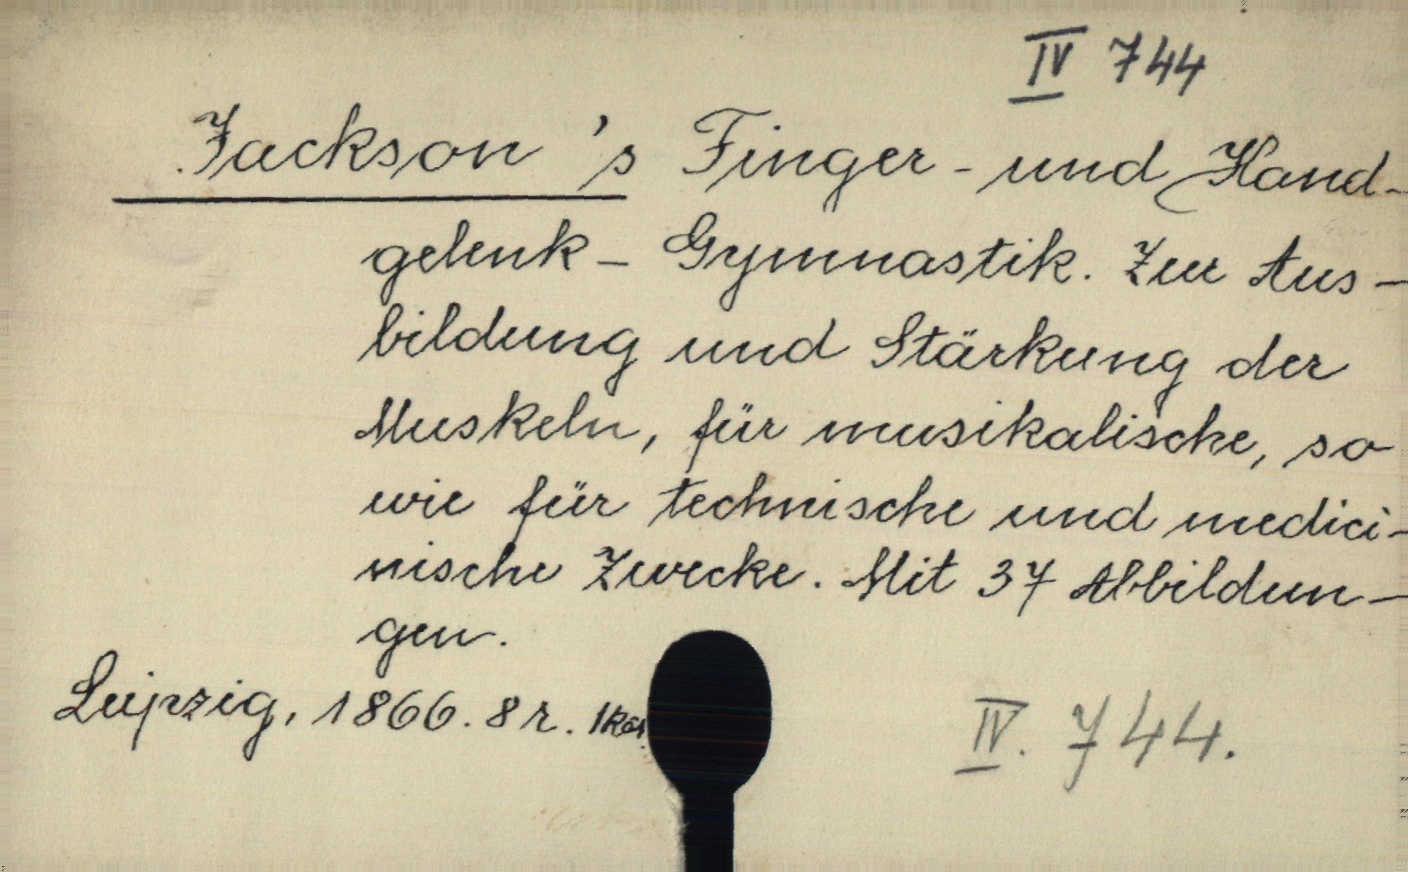 IV 744
Jackson's Finger- und Hand-
gelenk- Gymnastik. Zur Aus-
bildung und Stärkung der
Muskeln, für musikalische, so
wie für technische und medici-
nische Zwecke. Mit 37 Abbildun-
gen.
Leipzig, 1866. 8 r.
IV. 744.